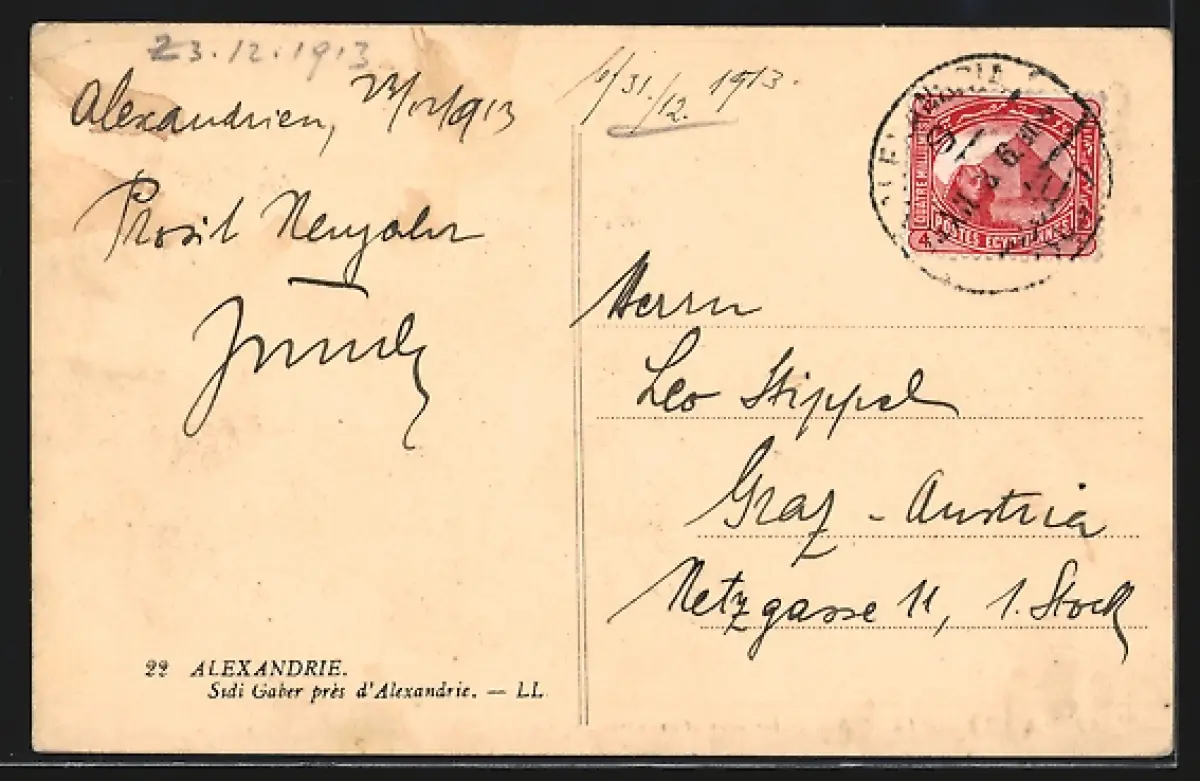 23.12.1913
Alexandrien, 23/12/913
Prosit Neujahr
6/31./12. 1913.
QUATRE MILLIEMES
POSTES EGYPTIENNES
4
Herrn
Leo Stippel
Graz - Austria
Netzgasse 11, 1. Stock
22 ALEXANDRIE.
Sidi Gaber près d'Alexandrie. — LL